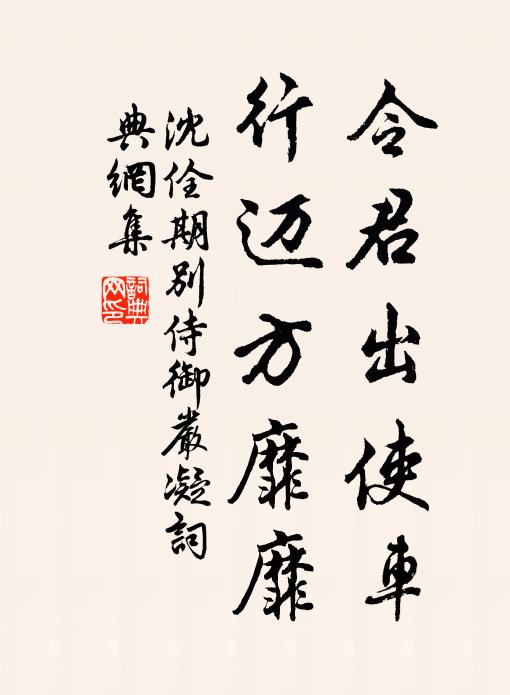 令君出使車
行迈方靡靡
沈佺期别侍御嚴凝詞
典網集
詞典
网印